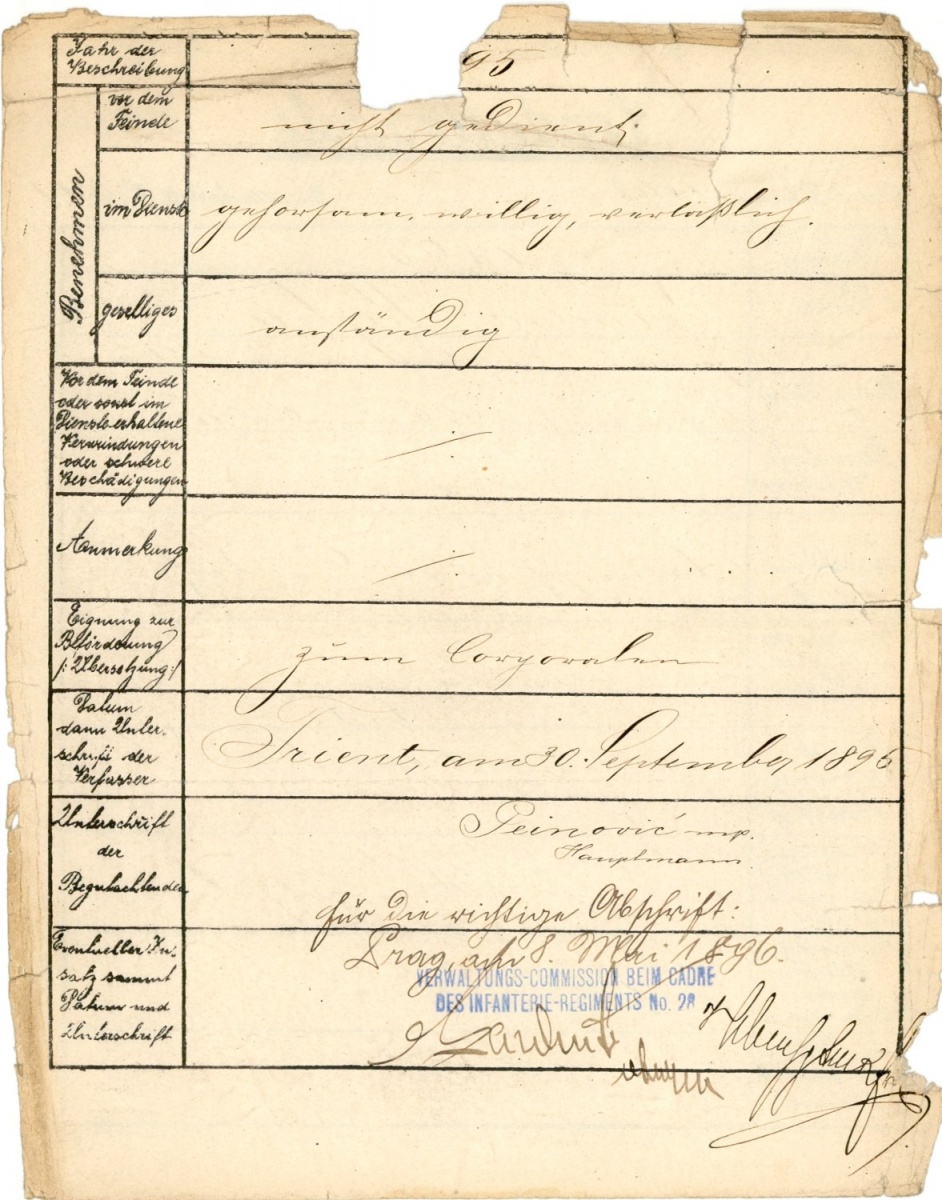 Jahr der
Beschreibung
95
Benehmen
vor dem
Feinde
nicht gedient.
im Dienste
gehorsam, willig, verlaßlich.
geselliges
anständig
Vor dem Feinde
oder sonst im
Dienste erhaltene
Verwundungen
oder schwere
Beschädigungen
./.
Anmerkung
./.
Eignung zur
Beförderung
/:Übersetzung:/
zum Corporalen
Datum
dann Unter-
schrift der
Verfasser
Trient, am 30. September 1895
Unterschrift
der
Begutachtenden
Peinović mp.
Hauptmann
für die richtige Abschrift:
Eventueller Zu-
satz sammt
Datum und
Unterschrift
Prag, am 8. Mai 1896.
VERWALTUNGS-COMMISSION BEIM CADRE
DES INFANTERIE-REGIMENTS No. 28